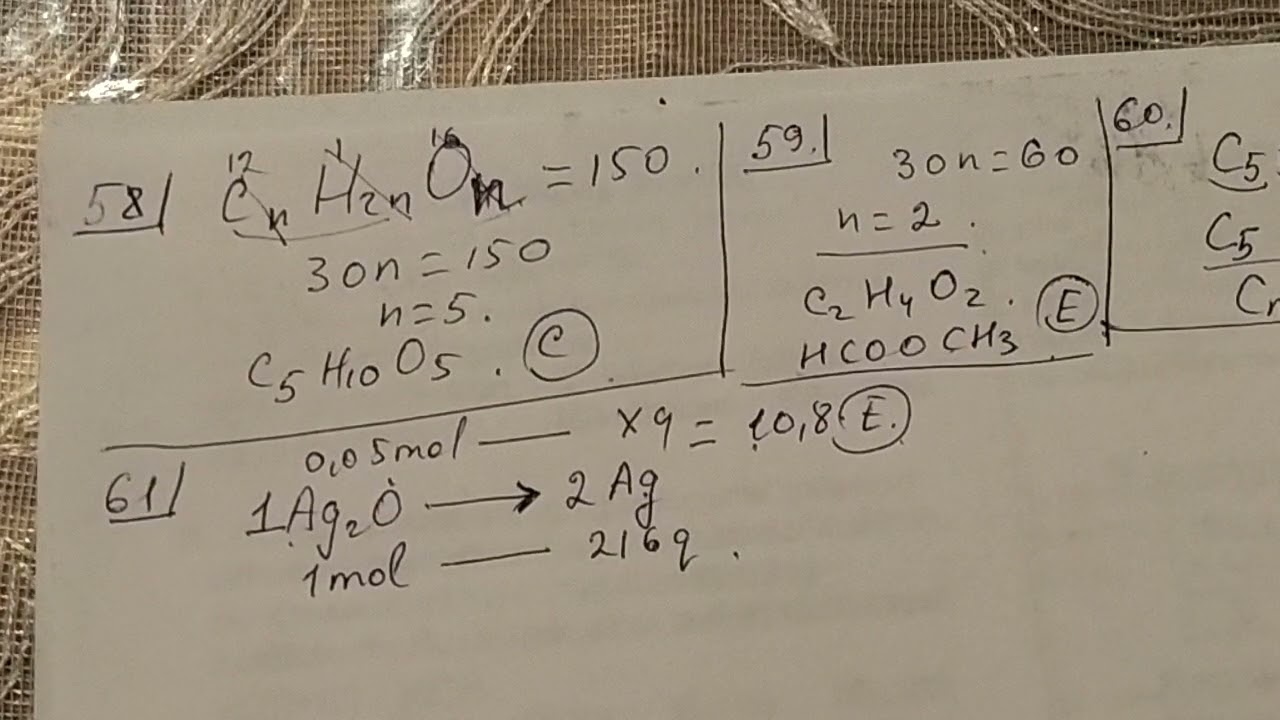 58/ CnH2nOn = 150.
12 1 16
30n = 150
n = 5.
C5H10O5. C
59. 30n = 60
n = 2.
C2H4O2. E
HCOOCH3.
60. C5
C5
61/ 0,05mol — xq = 10,8 E.
1Ag2O → 2Ag
1mol — 216q.